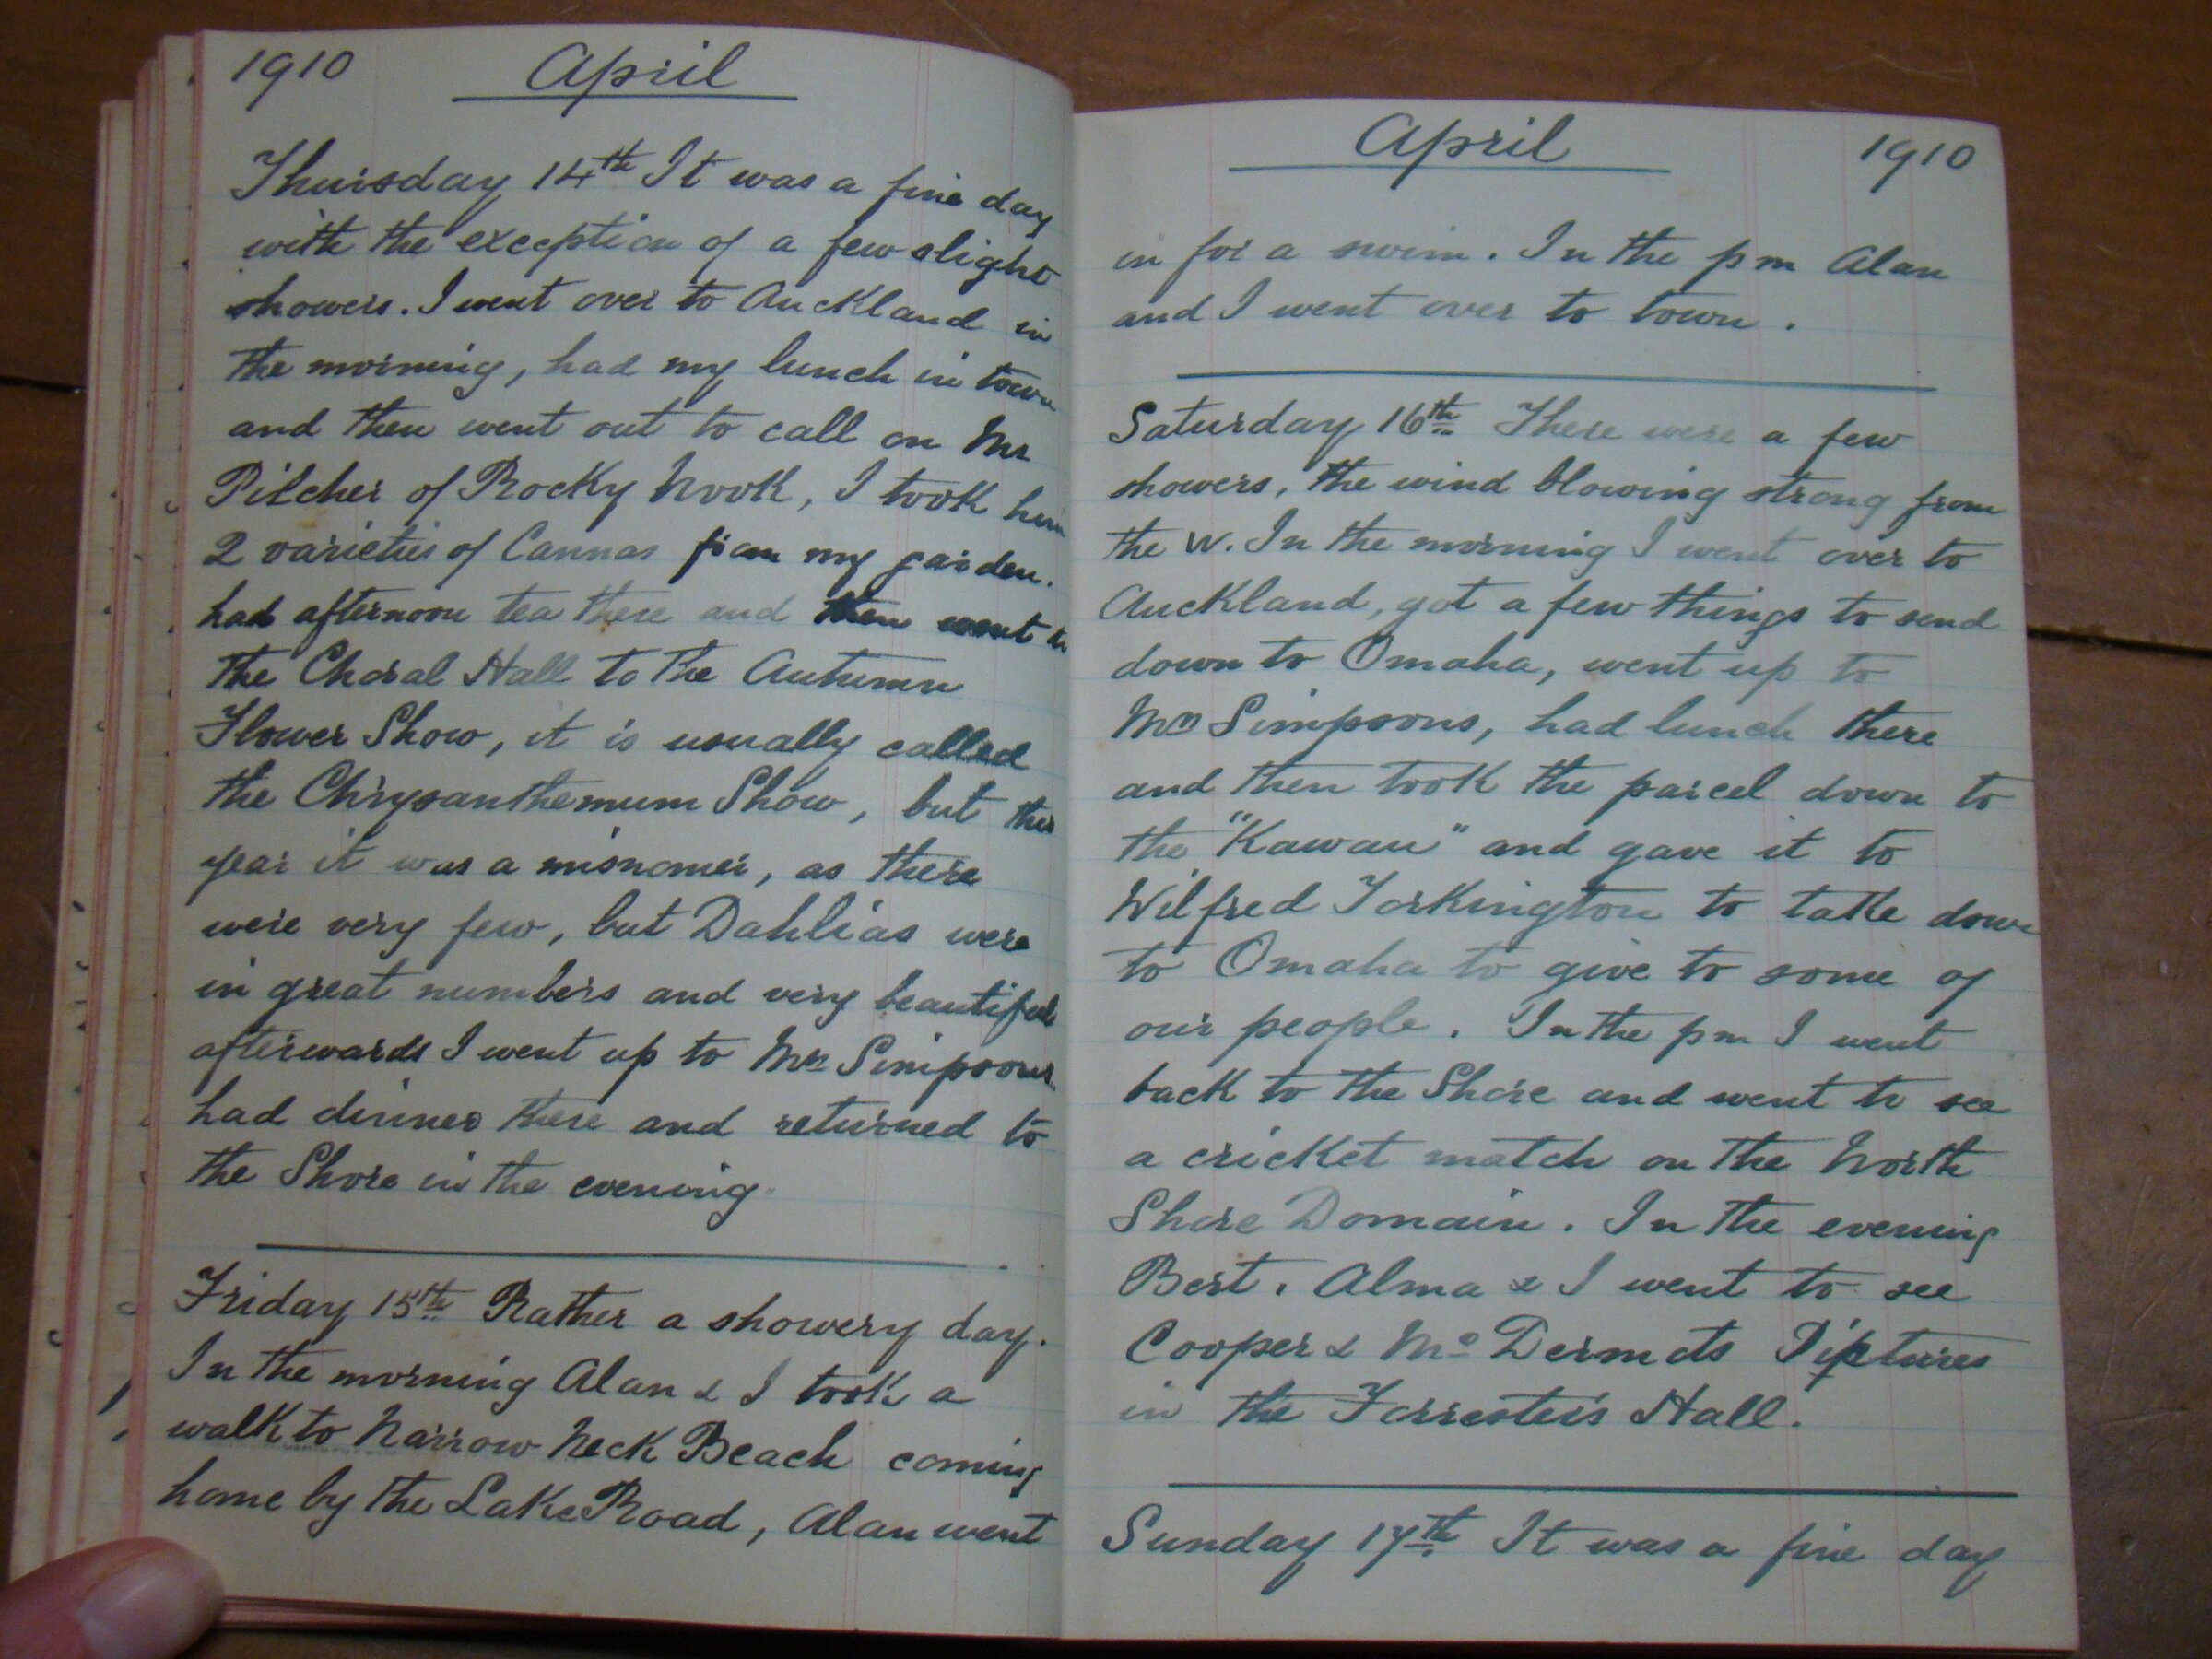 1910 April
Thursday 14th It was a fine day
with the exception of a few slight
showers. I went over to Auckland in
the morning, had my lunch in town
and then went out to call on Mr
Pilcher of Rocky Nook, I took him
2 varieties of Cannas from my garden.
had afternoon tea there and then went to
the Choral Hall to the Autumn
Flower Show, it is usually called
the Chrysanthemum Show, but this
year it was a misnomer, as there
were very few, but Dahlias were
in great numbers and very beautiful
afterwards I went up to Mrs Simpsons
had dinner there and returned to
the Shore in the evening.
Friday 15th Rather a showery day.
In the morning Alan & I took a
walk to Narrow Neck Beach coming
home by the Lake Road, Alan went
April 1910
in for a swim. In the pm Alan
and I went over to town.
Saturday 16th There were a few
showers, the wind blowing strong from
the W. In the morning I went over to
Auckland, got a few things to send
down to Omaha, went up to
Mrs Simpsons, had lunch there
and then took the parcel down to
the "Kawau" and gave it to
Wilfred Torkington to take down
to Omaha to give to some of
our people. In the pm I went
back to the Shore and went to see
a cricket match on the North
Shore Domain. In the evening
Bert, Alma & I went to see
Cooper & McDermots Piptures
in the Forrester's Hall.
Sunday 17th It was a fine day